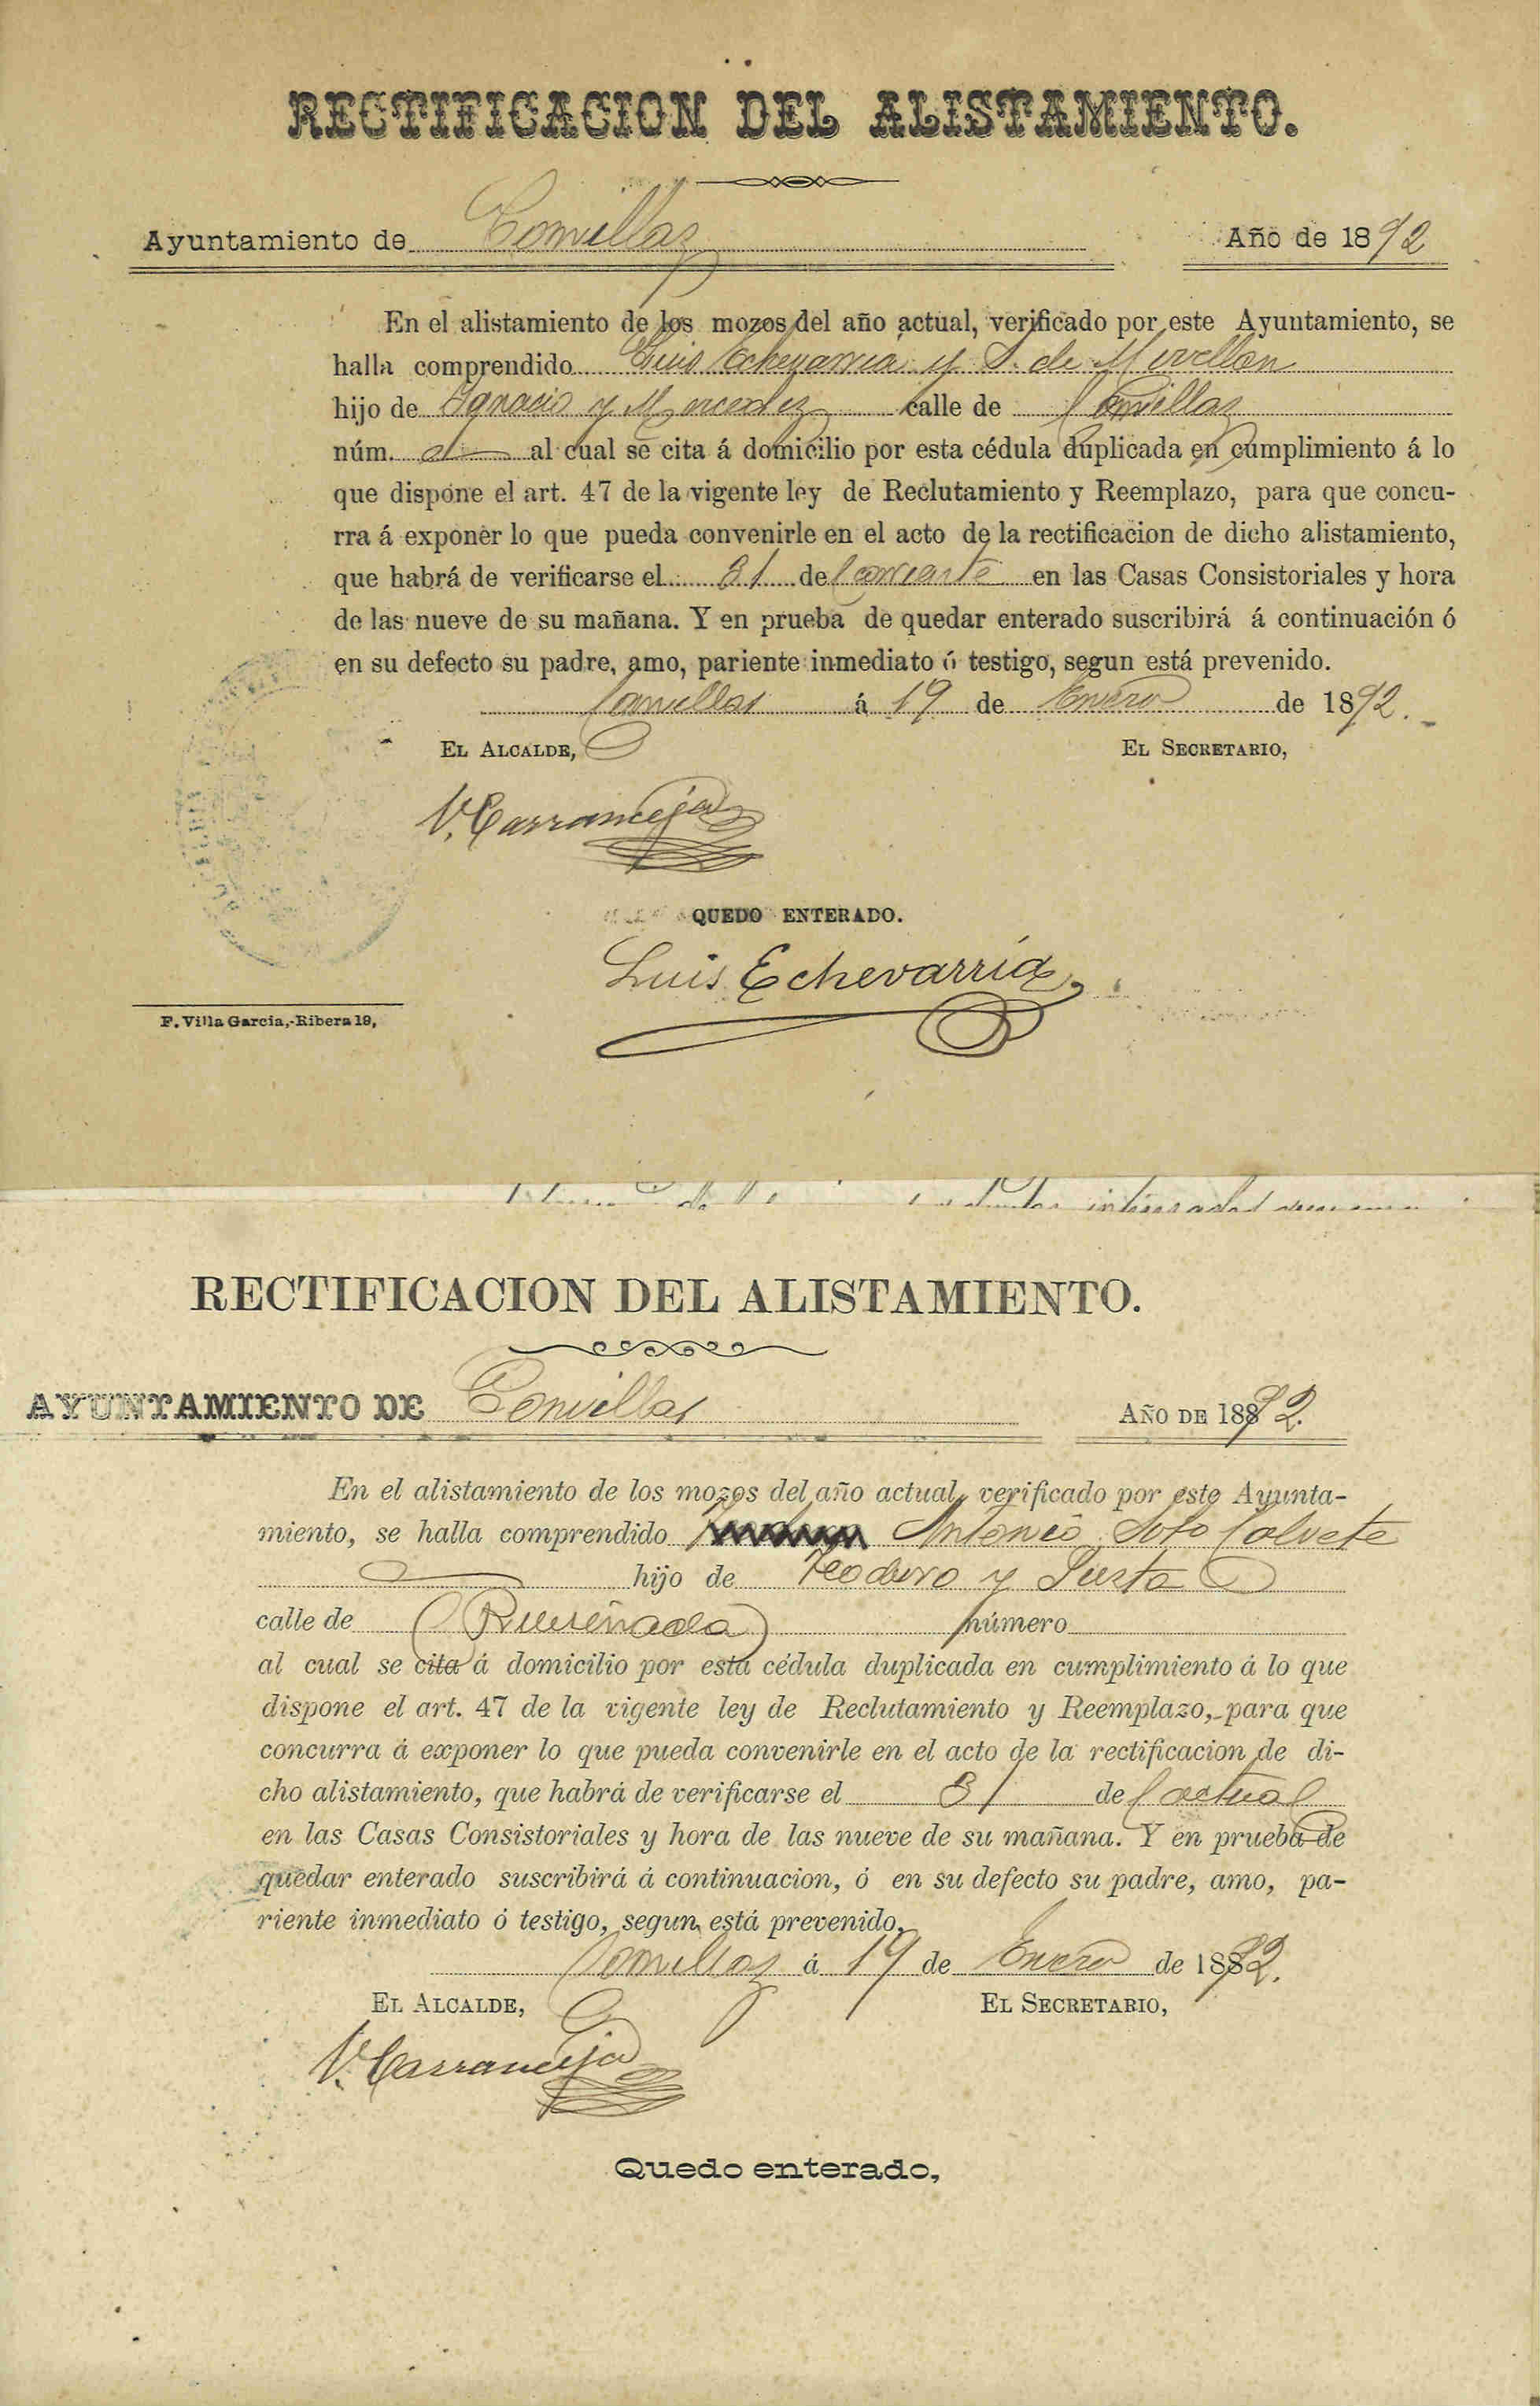 RECTIFICACION DEL ALISTAMIENTO.
Ayuntamiento de Comillas Año de 1892
En el alistamiento de los mozos del año actual, verificado por este Ayuntamiento, se
halla comprendido Luis Echevarria y S. de Movellan
hijo de Ignacio y Mercedes calle de Comillas
núm. al cual se cita á domicilio por esta cédula duplicada en cumplimiento á lo
que dispone el art. 47 de la vigente ley de Reclutamiento y Reemplazo, para que concu-
rra á exponer lo que pueda convenirle en el acto de la rectificacion de dicho alistamiento,
que habrá de verificarse el 31 del corriente en las Casas Consistoriales y hora
de las nueve de su mañana. Y en prueba de quedar enterado suscribirá á continuación ó
en su defecto su padre, amo, pariente inmediato ó testigo, segun está prevenido.
Comillas á 19 de Enero de 1892.
EL ALCALDE, EL SECRETARIO,
V. Carranceja
QUEDO ENTERADO.
Luis Echevarría
F. Villa Garcia,-Ribera 19,
RECTIFICACION DEL ALISTAMIENTO.
AYUNTAMIENTO DE Comillas AÑO DE 1892.
En el alistamiento de los mozos del año actual, verificado por este Ayunta-
miento, se halla comprendido Antonio Soto Calvete
hijo de Teodoro y Justa
calle de (Ruiseñada) número
al cual se cita á domicilio por esta cédula duplicada en cumplimiento á lo que
dispone el art. 47 de la vigente ley de Reclutamiento y Reemplazo, para que
concurra á exponer lo que pueda convenirle en el acto de la rectificacion de di-
cho alistamiento, que habrá de verificarse el 31 del actual
en las Casas Consistoriales y hora de las nueve de su mañana. Y en prueba de
quedar enterado suscribirá á continuacion, ó en su defecto su padre, amo, pa-
riente inmediato ó testigo, segun está prevenido.
Comillas á 19 de Enero de 1892.
EL ALCALDE, EL SECRETARIO,
V. Carranceja
Quedo enterado,